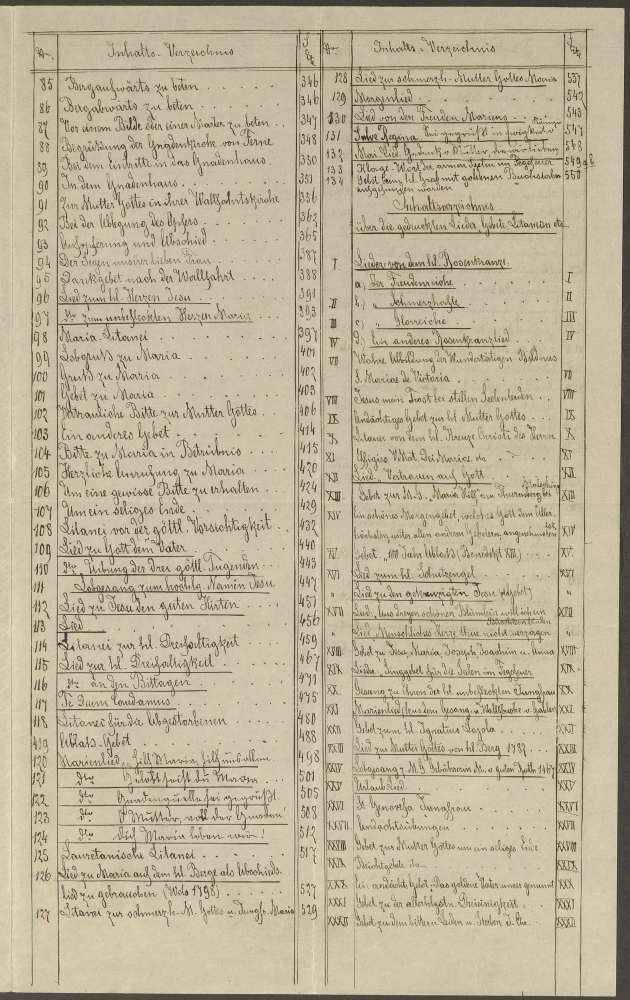 No. Inhalts-Verzeichnis Seite
85 Bergaufwärts zu beten 346
86 Bergabwärts zu beten 346
87 Vor einem Bilde oder einer Marter zu beten 347
88 Begrüßung der Gnadenkirche von Ferne 348
89 Bei dem Eintritte in das Gnadenhaus 350
90 In dem Gnadenhaus 351
91 Zur Mutter Gottes in ihrer Wallfahrtskirche 356
92 Bei der Ablegung des Opfers 362
93 Aufopferung und Abschied 365
94 Der Segen unserer lieben Frau 387
95 Dankgebet nach der Wallfahrt 388
96 Lied zum hl. Herzen Jesu 391
97 dto zum unbefleckten Herzen Maria 393
98 Maria-Litanei 397
99 Lobspruch zu Maria 401
100 Gruß zu Maria 402
101 Gebet zu Maria 403
102 Vertrauliche Bitte zur Mutter Gottes 406
103 Ein anderes Gebet 414
104 Bitte zu Maria in Betrübnis 415
105 Herzliche Anrufung zu Maria 420
106 Um eine gewisse Bitte zu erhalten 424
107 Um ein seliges Ende 429
108 Litanei vor der göttl. Vorsichtigkeit 432
109 Lied zu Gott dem Vater 440
110 dto Übung der drei göttl. Tugenden 443
111 Lobgesang zum hochhlg. Namen Jesu 447
112 Lied zu Jesu den guten Hirten 451
113 Lied 456
114 Litanei zur hl. Dreifaltigkeit 459
115 Lied zur hl. Dreifaltigkeit 467
116 dto an den Bittagen 471
117 Te Deum laudamus 475
118 Litanei für die Abgestorbenen 480
119 Ablaß-Gebet 488
120 Marienlied, Hilf Maria, hilf uns allen 498
121 dto Gelobt seist du Maria 501
122 dto Gnadenquelle sei gegrüßt 505
123 dto O Mutter, voll der Gnaden 508
124 dto Dich Maria lieben wir! 512
125 Lauretanische Litanei 517
126 Lied zu Maria auf dem hl. Berge als Abschieds-
lied zu gebrauchen (Wels 1798) 527
127 Litanei zur schmerzh. M. Gottes u. Jungfr. Maria 529
No. Inhalts-Verzeichnis Seite
128 Lied zur schmerzh. Mutter Gottes Maria 537
129 Morgenlied 542
130 Lied von den Freuden Mariens 543
131 Salve Regina 547
132 Mai Lied 548
133 Klage-Worte der armen Seelen im Fegefeuer 549
134 Gebet, am hl. Grab mit goldenen Buchstaben 550
aufgefunden worden
Inhaltsverzeichnis
über die gedruckten Lieder Gebete Litaneien etc
I Lieder von dem hl. Rosenkranze.
a, Der Freudenreiche I
II b, " Schmerzhafte II
III c, " Glorreiche III
IV d, Ein anderes Rosenkranzlied IV
VII Wahre Abbildung der Wundertätigen Bildnus
S. Mariae de Victoria VII
VIII Jesus mein Trost bei stillen Seelenleiden VIII
IX Andächtiges Gebet zur hl. Mutter Gottes IX
X Litanei von dem hl. Kreuze Christi des Herrn X
XI Effigies V. Mat. Dei Mariae de XI
XII Lied, Vertrauen auf Gott XII
XIII Gebet zur M. G. "Maria Hilf" am Thurnberg bei XIII
XIV Ein schönes Morgengebet, welches Gott dem Aller-
höchsten unter allen anderen Gebeten am angenehmsten ist XIV
XV Gebet, "100 Jahr Ablaß (Benedikt XIII) XV
XVI Lied zum hl. Schutzengel XVI
" Lied zu den gekreuzigten Jesu "
XVII Lied, "Uns dreyen schönen Blümlein will ich ein XVII
" Lied, Menschliches Herze thue nicht verzagen "
XVIII Gebet zu Jesu, Maria, Joseph, Joachim u. Anna XVIII
XIX Lieder, Singgebet für die Seelen im Fegefeuer XIX
XX Gesang zu Ehren der hl. unbefleckten Jungfrau XX
XXI Marienlied XXI
XXII Gebet zum hl. Ignatius Loyola XXII
XXIII Lied zur Mutter Gottes von hl. Berg 1787 XXIII
XXIV Lobgesang z. M. G. Gebährerin M. v. guten Rath 1467 XXIV
XXV Urlaub Lied XXV
XXVI St Genovefa Jungfrau XXVI
XXVII Andachtsübungen XXVII
XXVIII Gebet zur Mutter Gottes um ein seliges Ende XXVIII
XXIX Beichtgebete XXIX
XXX Ein andächt. Gebet, "Das goldene Vater unser genannt XXX
XXXI Gebet zu der allerheiligsten Dreieinigkeit XXXI
XXXII Gebet zu dem bitteren Leiden u. Sterben J. Chr. XXXII